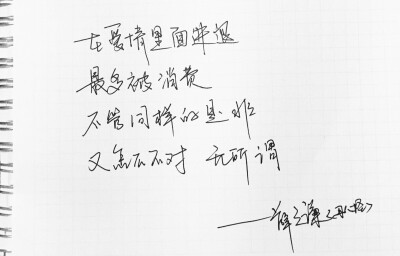 在爱情里面进退
最多被消费
不管同样的是非
又怎么不对 无所谓
——薛之谦《丑八怪》